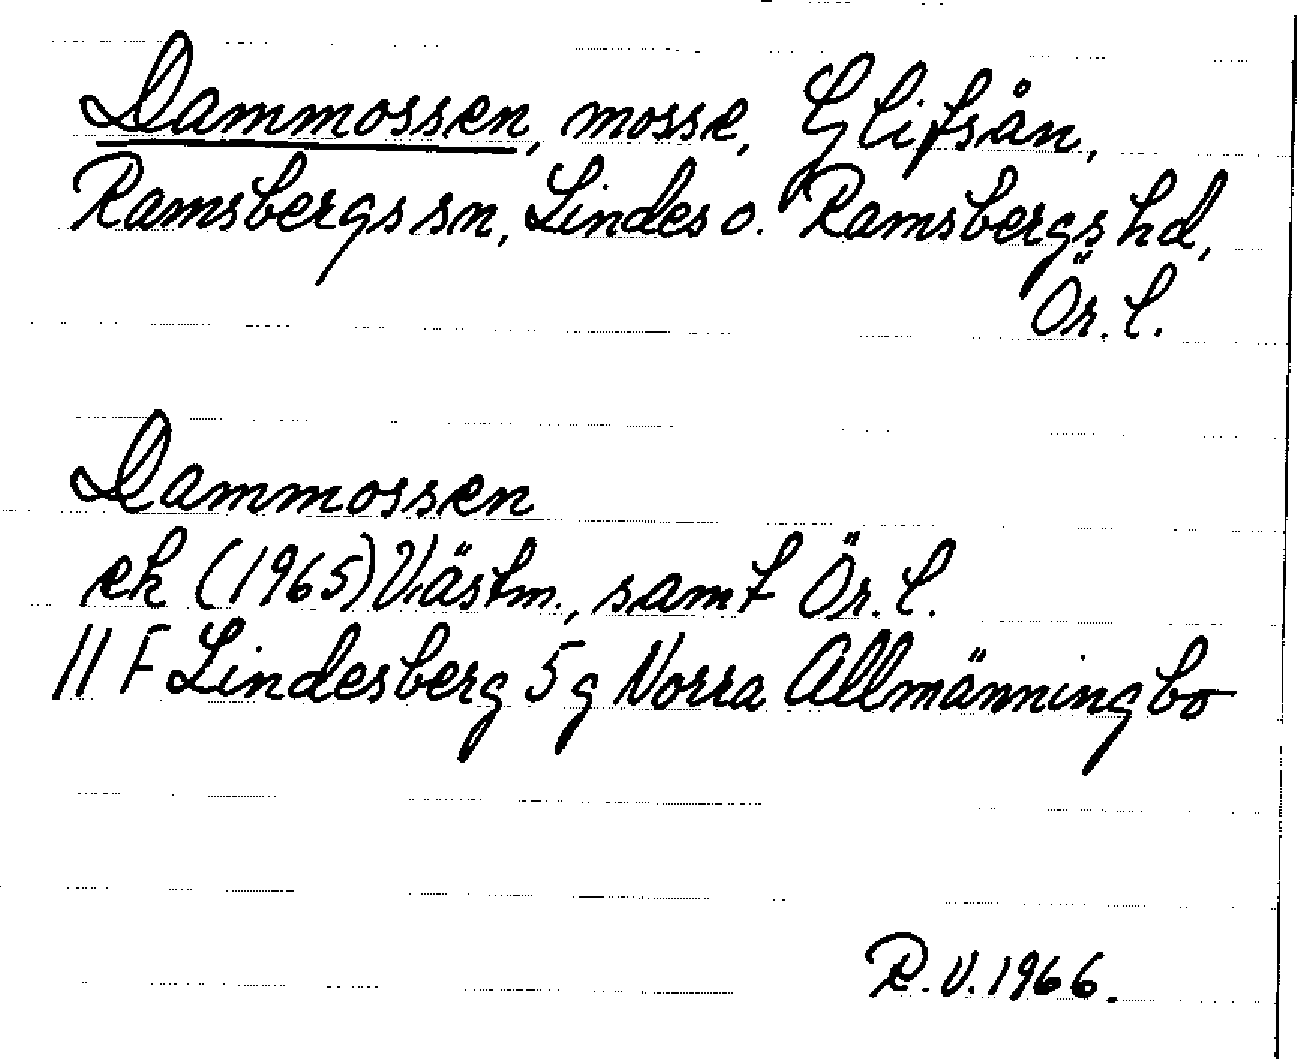 Dammossen, mosse, Glifsån,
Ramsbergs sn, Lindes o. Ramsbergs hd,
Ör. l.
Dammossen
ek (1965) Västm., samt Ör. l.
11 F Lindesberg 5 g Norra Allmänningbo
R.V. 1966.